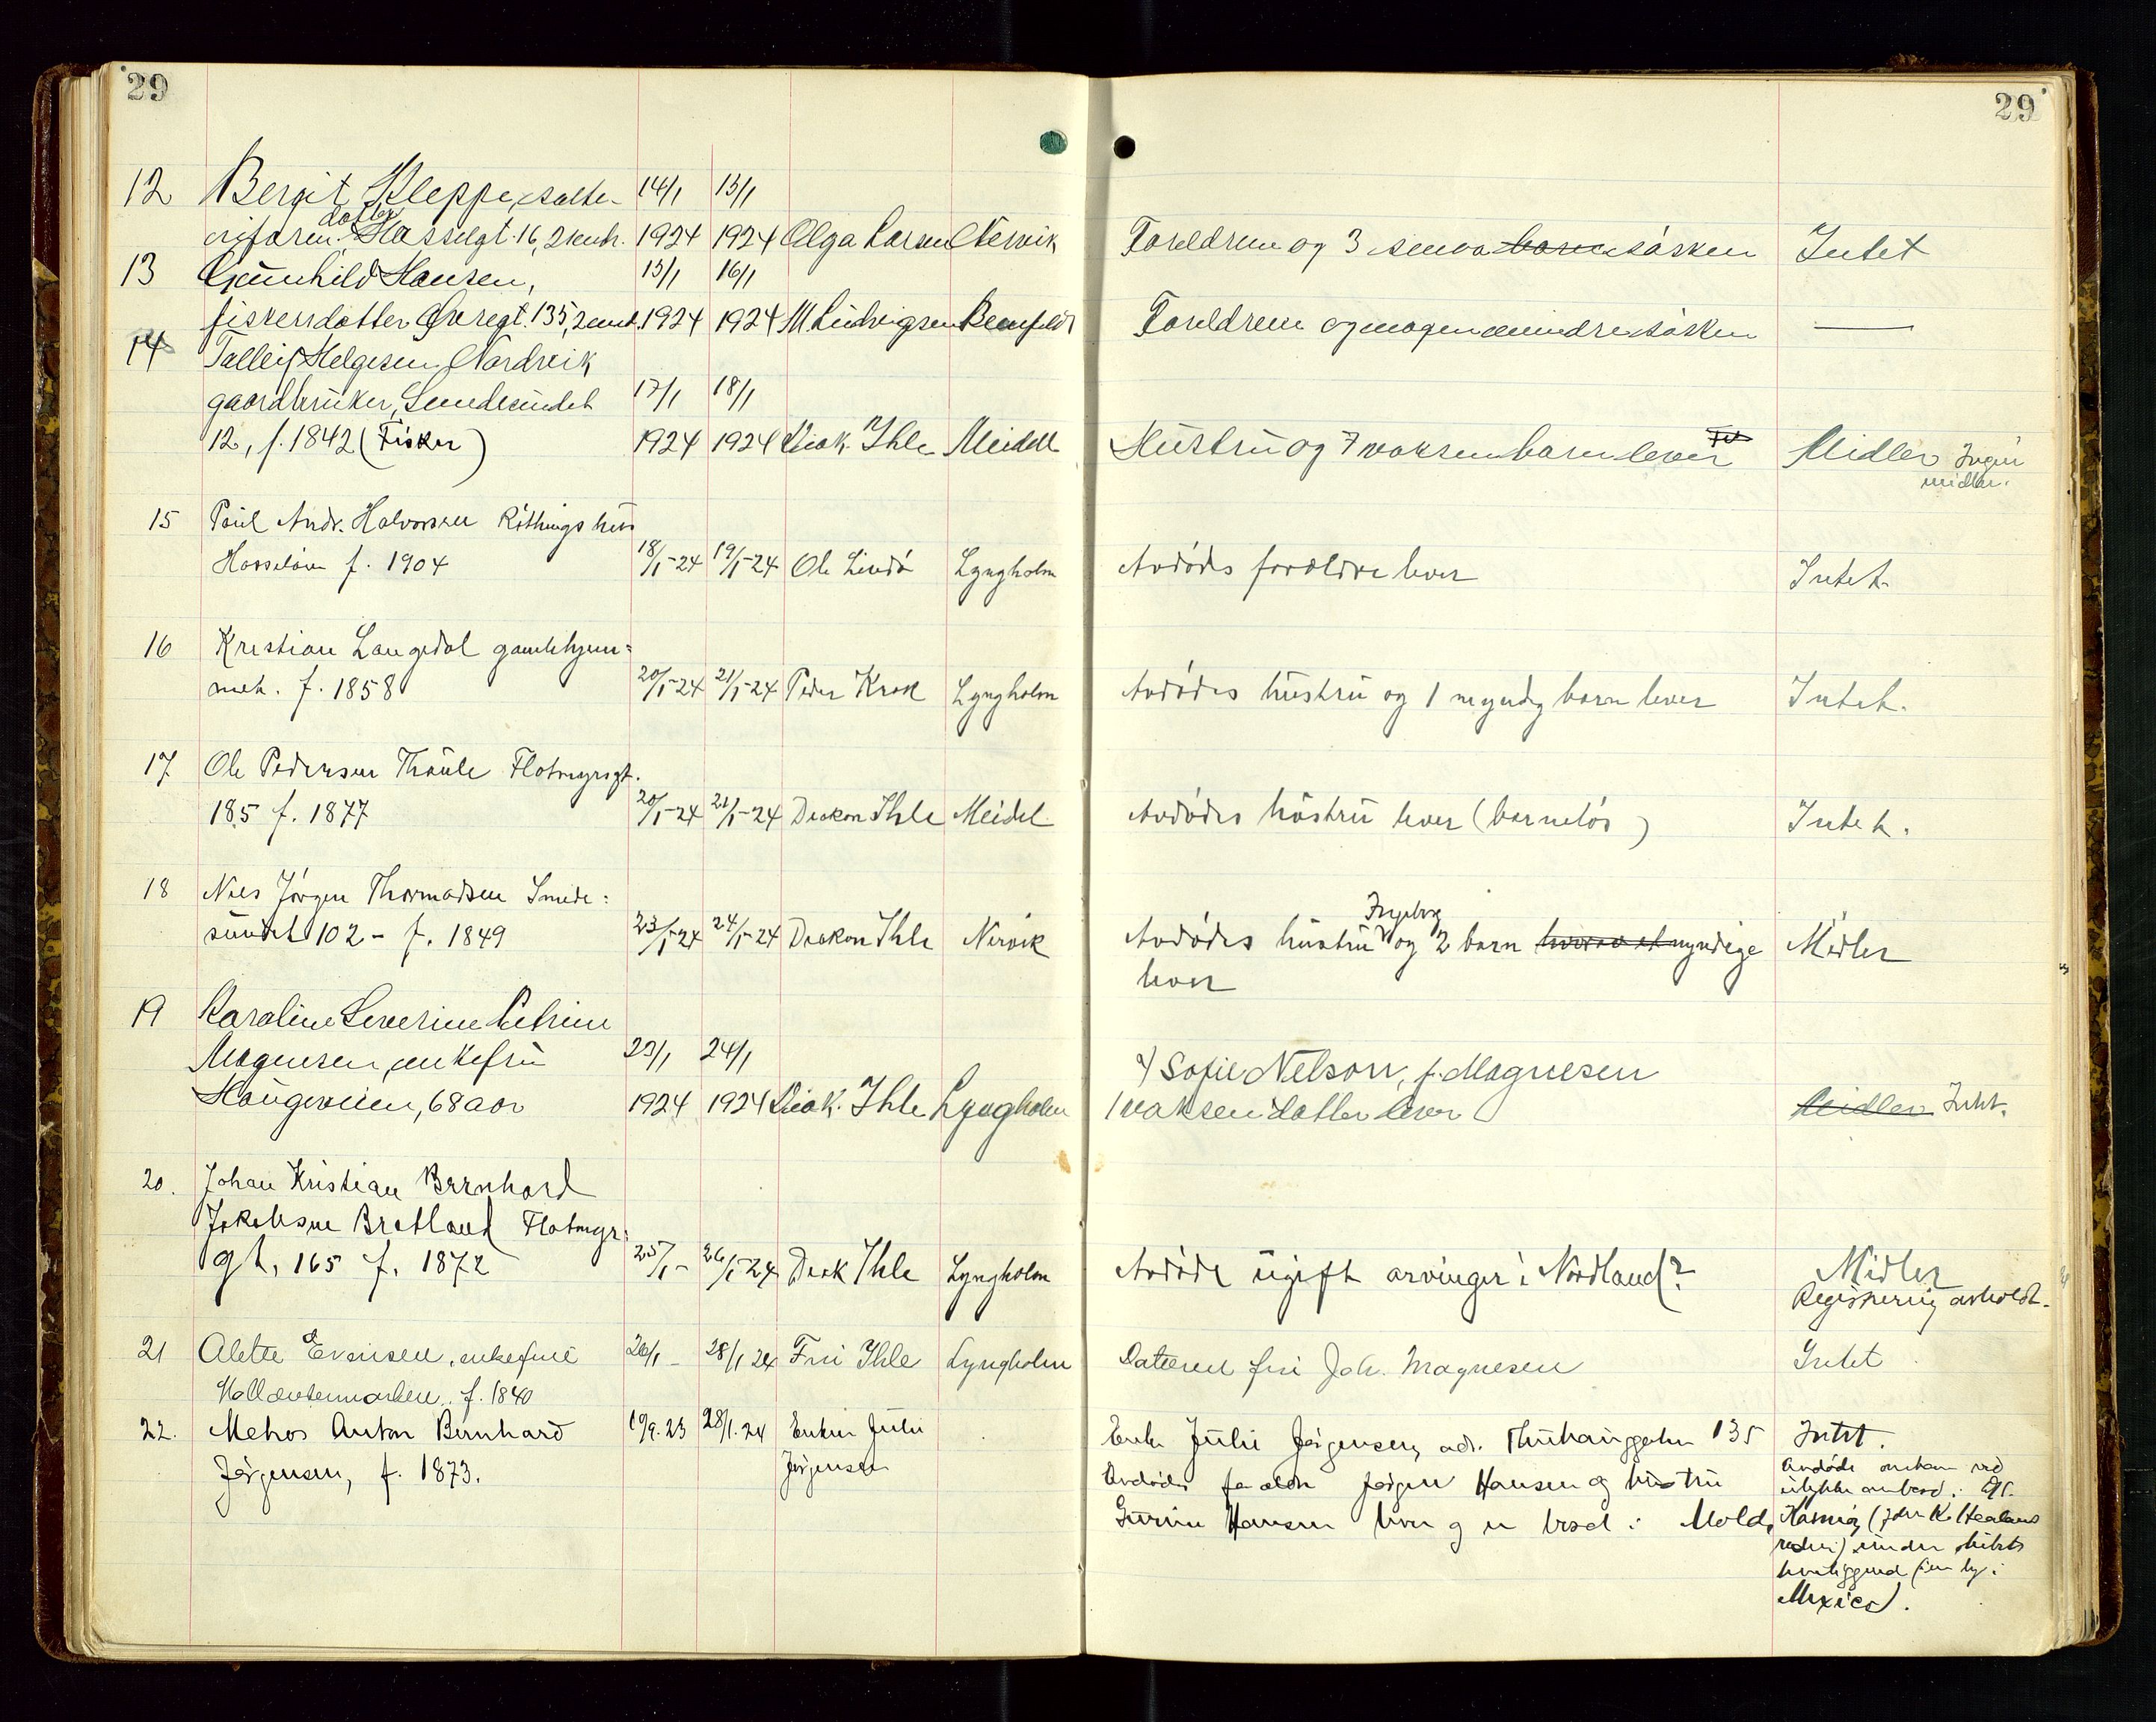 29
29
12 Bergit Kleppe, salte- 14/1 15/1
datter Hasselgt. 16, 2 1924 1924 Olga Larsen Nervik Foreldrene og 3 smaa barn søsken Intet
13 Gunhild Hansen, 15/1 16/1
fiskerdatter Øvregt. 135, 2 1924 1924 M Ludvigsen Foreldrene og mindre søsken —
14 Talleif Helgesen Nordvik
gaardbruker, Smedesundet 17/1 18/1
12, f. 1842 (Fisker) 1924 1924 Diak. Ihle Meidell Hustru og 7 voksen barn lever Midler Ingen
midler.
15 Paul Andr. Halvorsen Røthings hus
Hasseløen f. 1904 18/1-24 19/1-24 Ole Lindø Lyngholm Avdødes forældre lever Intet.
16 Kristian Langedal gamlehjem=
met. f. 1858 20/1-24 21/1-24 Peder Krok Lyngholm Avdødes hustru og 1 myndg barn lever Intet.
17 Ole Pedersen Thaule Flotmyrgt.
185 f. 1877 20/1-24 21/1-24 Diakon Ihle Meidel Avdødes hustru lever (barneløs) Intet.
18 Nils Jørgen Thormodsen Smede=
sundet 102 - f. 1849 23/1-24 24/1-24 Diakon Ihle Nervik Avdødes hustru Ingeborg og 2 barn hvorav et myndige Midler
lever
19 Karoline Severine Petrine
Magnesen, enkefru 23/1 24/1 a/ Sofie Nelson, f. Magnesen
Haugeveien, 68 aar 1924 1924 Diak. Ihle Lyngholm 1 voksen datter lever Midler Intet.
20. Johan Kristian Bernhard
Jakobsen Bratland Flotmyr=
gt, 165 f. 1872 25/1- 26/1-24 Diak Ihle Lyngholm Avdøde ugift arvinger i Nordland? Midler
Registrering avholdt.
21 Alette Evensen, enkefrue 26/1- 28/1 24 Fru Ihle Lyngholm Datteren fru Joh. Magnesen Intet
f. 1840
22. Anton Bernhard 19/9.23 28/1.24 Enken Julie Enke Julie Jørgensen, adr. Thuhauggaten 135 Intet.
Jørgensen, f. 1873. Jørgensen Avdødes Jørgen Hansen og hustru Avdøde omkom ved
Hansen lever og er bosat i Molde ulykke ombord i
under
Mexico).